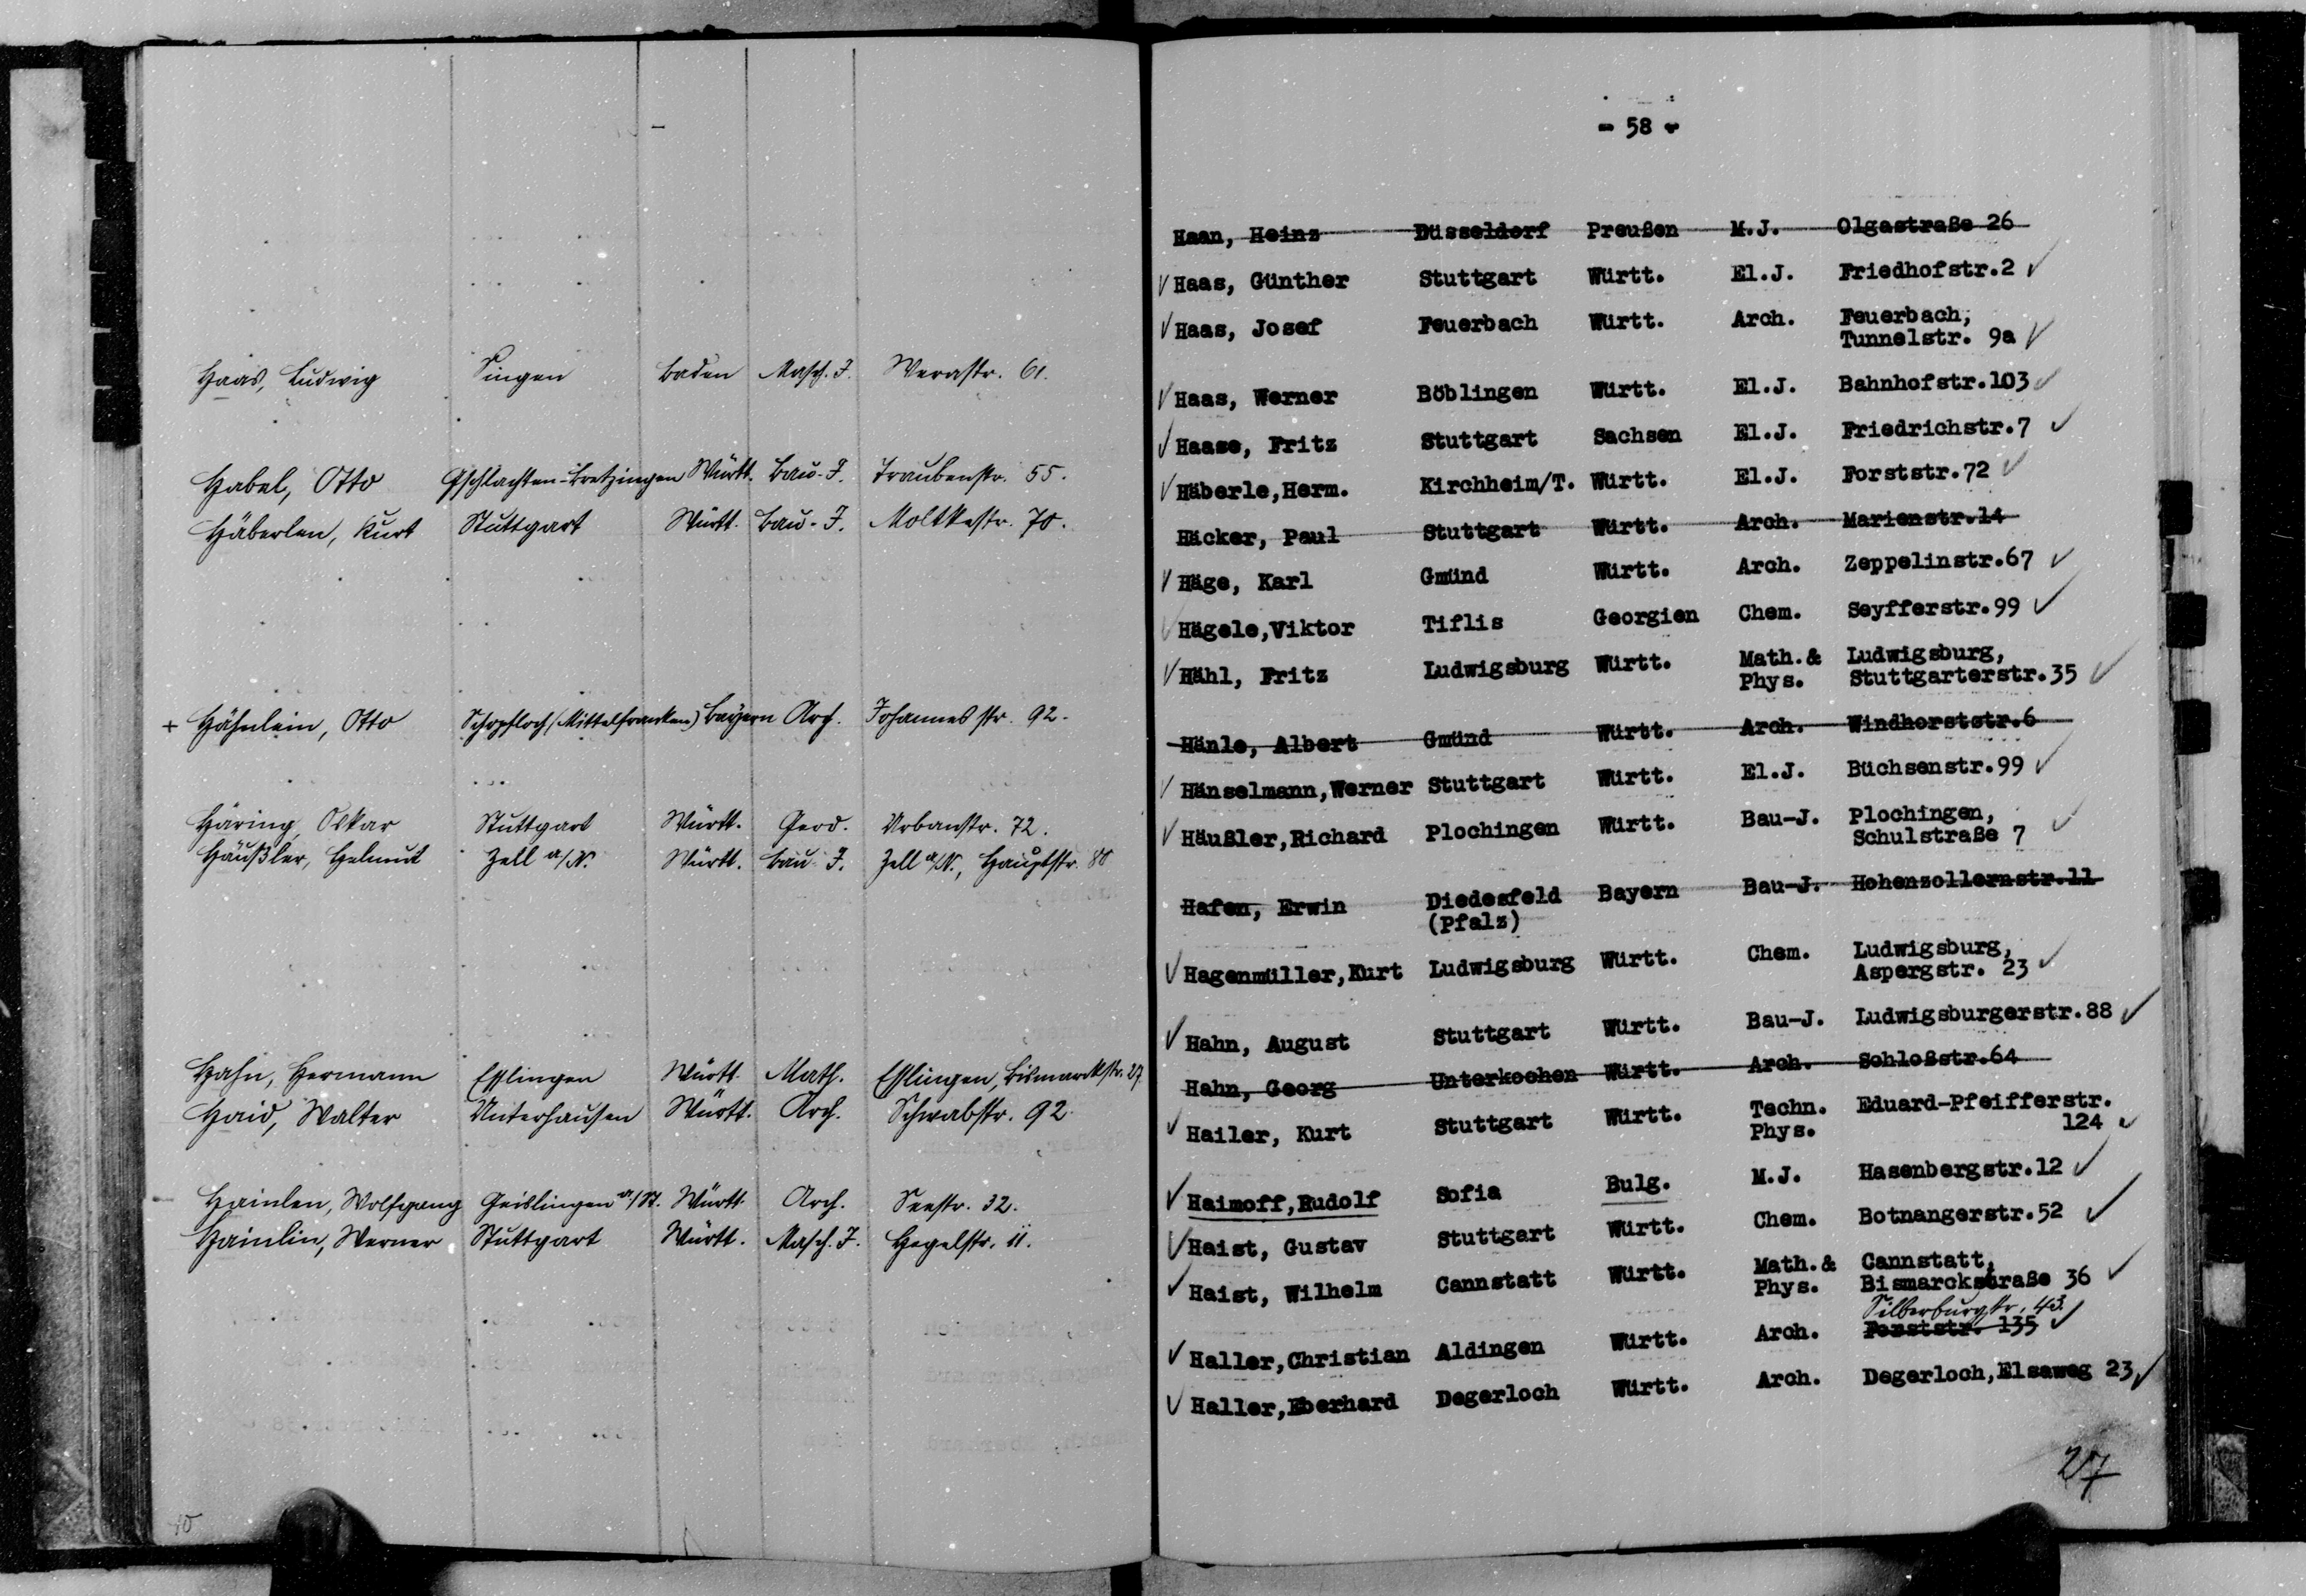 Haas, Ludwig Singen Baden Masch. I. Werastr. 61.
Habel, Otto Gschlachten-Bretzingen Württ. Bau-I. Traubenstr. 55.
Häberlen, Kurt Stuttgart Württ. Bau-I. Moltkestr. 70.
+ Hähnlein, Otto Schopfloch (Mittelfranken) Bayern Arch. Johannesstr. 92.
Häring, Oskar Stuttgart Württ. Geod. Urbanstr. 72.
Häußler, Helmut Zell a/N. Württ. Bau-I. Zell a/N., Hauptstr. 80
Hahn, Hermann Esslingen Württ. Math. Esslingen, Bismarckstr. 27.
Haid, Walter Unterhausen Württ. Arch. Schwabstr. 92.
Hainlen, Wolfgang Geislingen a/St. Württ. Arch. Seestr. 32.
Hainlin, Werner Stuttgart Württ. Masch. I. Hegelstr. 11.
10
- 58 -
Haan, Heinz Düsseldorf Preußen M.J. Olgastraße 26
√ Haas, Günther Stuttgart Württ. El.J. Friedhofstr.2 √
√ Haas, Josef Feuerbach Württ. Arch. Feuerbach,
Tunnelstr. 9a √
√ Haas, Werner Böblingen Württ. El.J. Bahnhofstr.103 √
√ Haase, Fritz Stuttgart Sachsen El.J. Friedrichstr.7 √
√ Häberle,Herm. Kirchheim/T. Württ. El.J. Forststr.72 √
Häcker, Paul Stuttgart Württ. Arch. Marienstr.14
√ Häge, Karl Gmünd Württ. Arch. Zeppelinstr.67 √
√ Hägele,Viktor Tiflis Georgien Chem. Seyfferstr.99 √
√ Hähl, Fritz Ludwigsburg Württ. Math.& Ludwigsburg,
Phys. Stuttgarterstr.35 √
Hänle, Albert Gmünd Württ. Arch. Windhorststr.6
√ Hänselmann,Werner Stuttgart Württ. El.J. Büchsenstr.99 √
√ Häußler,Richard Plochingen Württ. Bau-J. Plochingen,
Schulstraße 7 √
Hafen, Erwin Diedesfeld Bayern Bau-J. Hohenzollernstr.11
(Pfalz)
√ Hagenmüller,Kurt Ludwigsburg Württ. Chem. Ludwigsburg,
Aspergstr. 23 √
√ Hahn, August Stuttgart Württ. Bau-J. Ludwigsburgerstr.88 √
Hahn, Georg Unterkochen Württ. Arch. Schloßstr.64
√ Hailer, Kurt Stuttgart Württ. Techn. Eduard-Pfeifferstr.
Phys. 124 √
√ Haimoff,Rudolf Sofia Bulg. M.J. Hasenbergstr.12 √
√ Haist, Gustav Stuttgart Württ. Chem. Botnangerstr.52 √
√ Haist, Wilhelm Cannstatt Württ. Math.& Cannstatt,
Phys. Bismarckstraße 36 √
Silberburgstr. 43.
√ Haller,Christian Aldingen Württ. Arch. Forststr. 135 √
√ Haller,Eberhard Degerloch Württ. Arch. Degerloch,Elsaweg 23 √
27